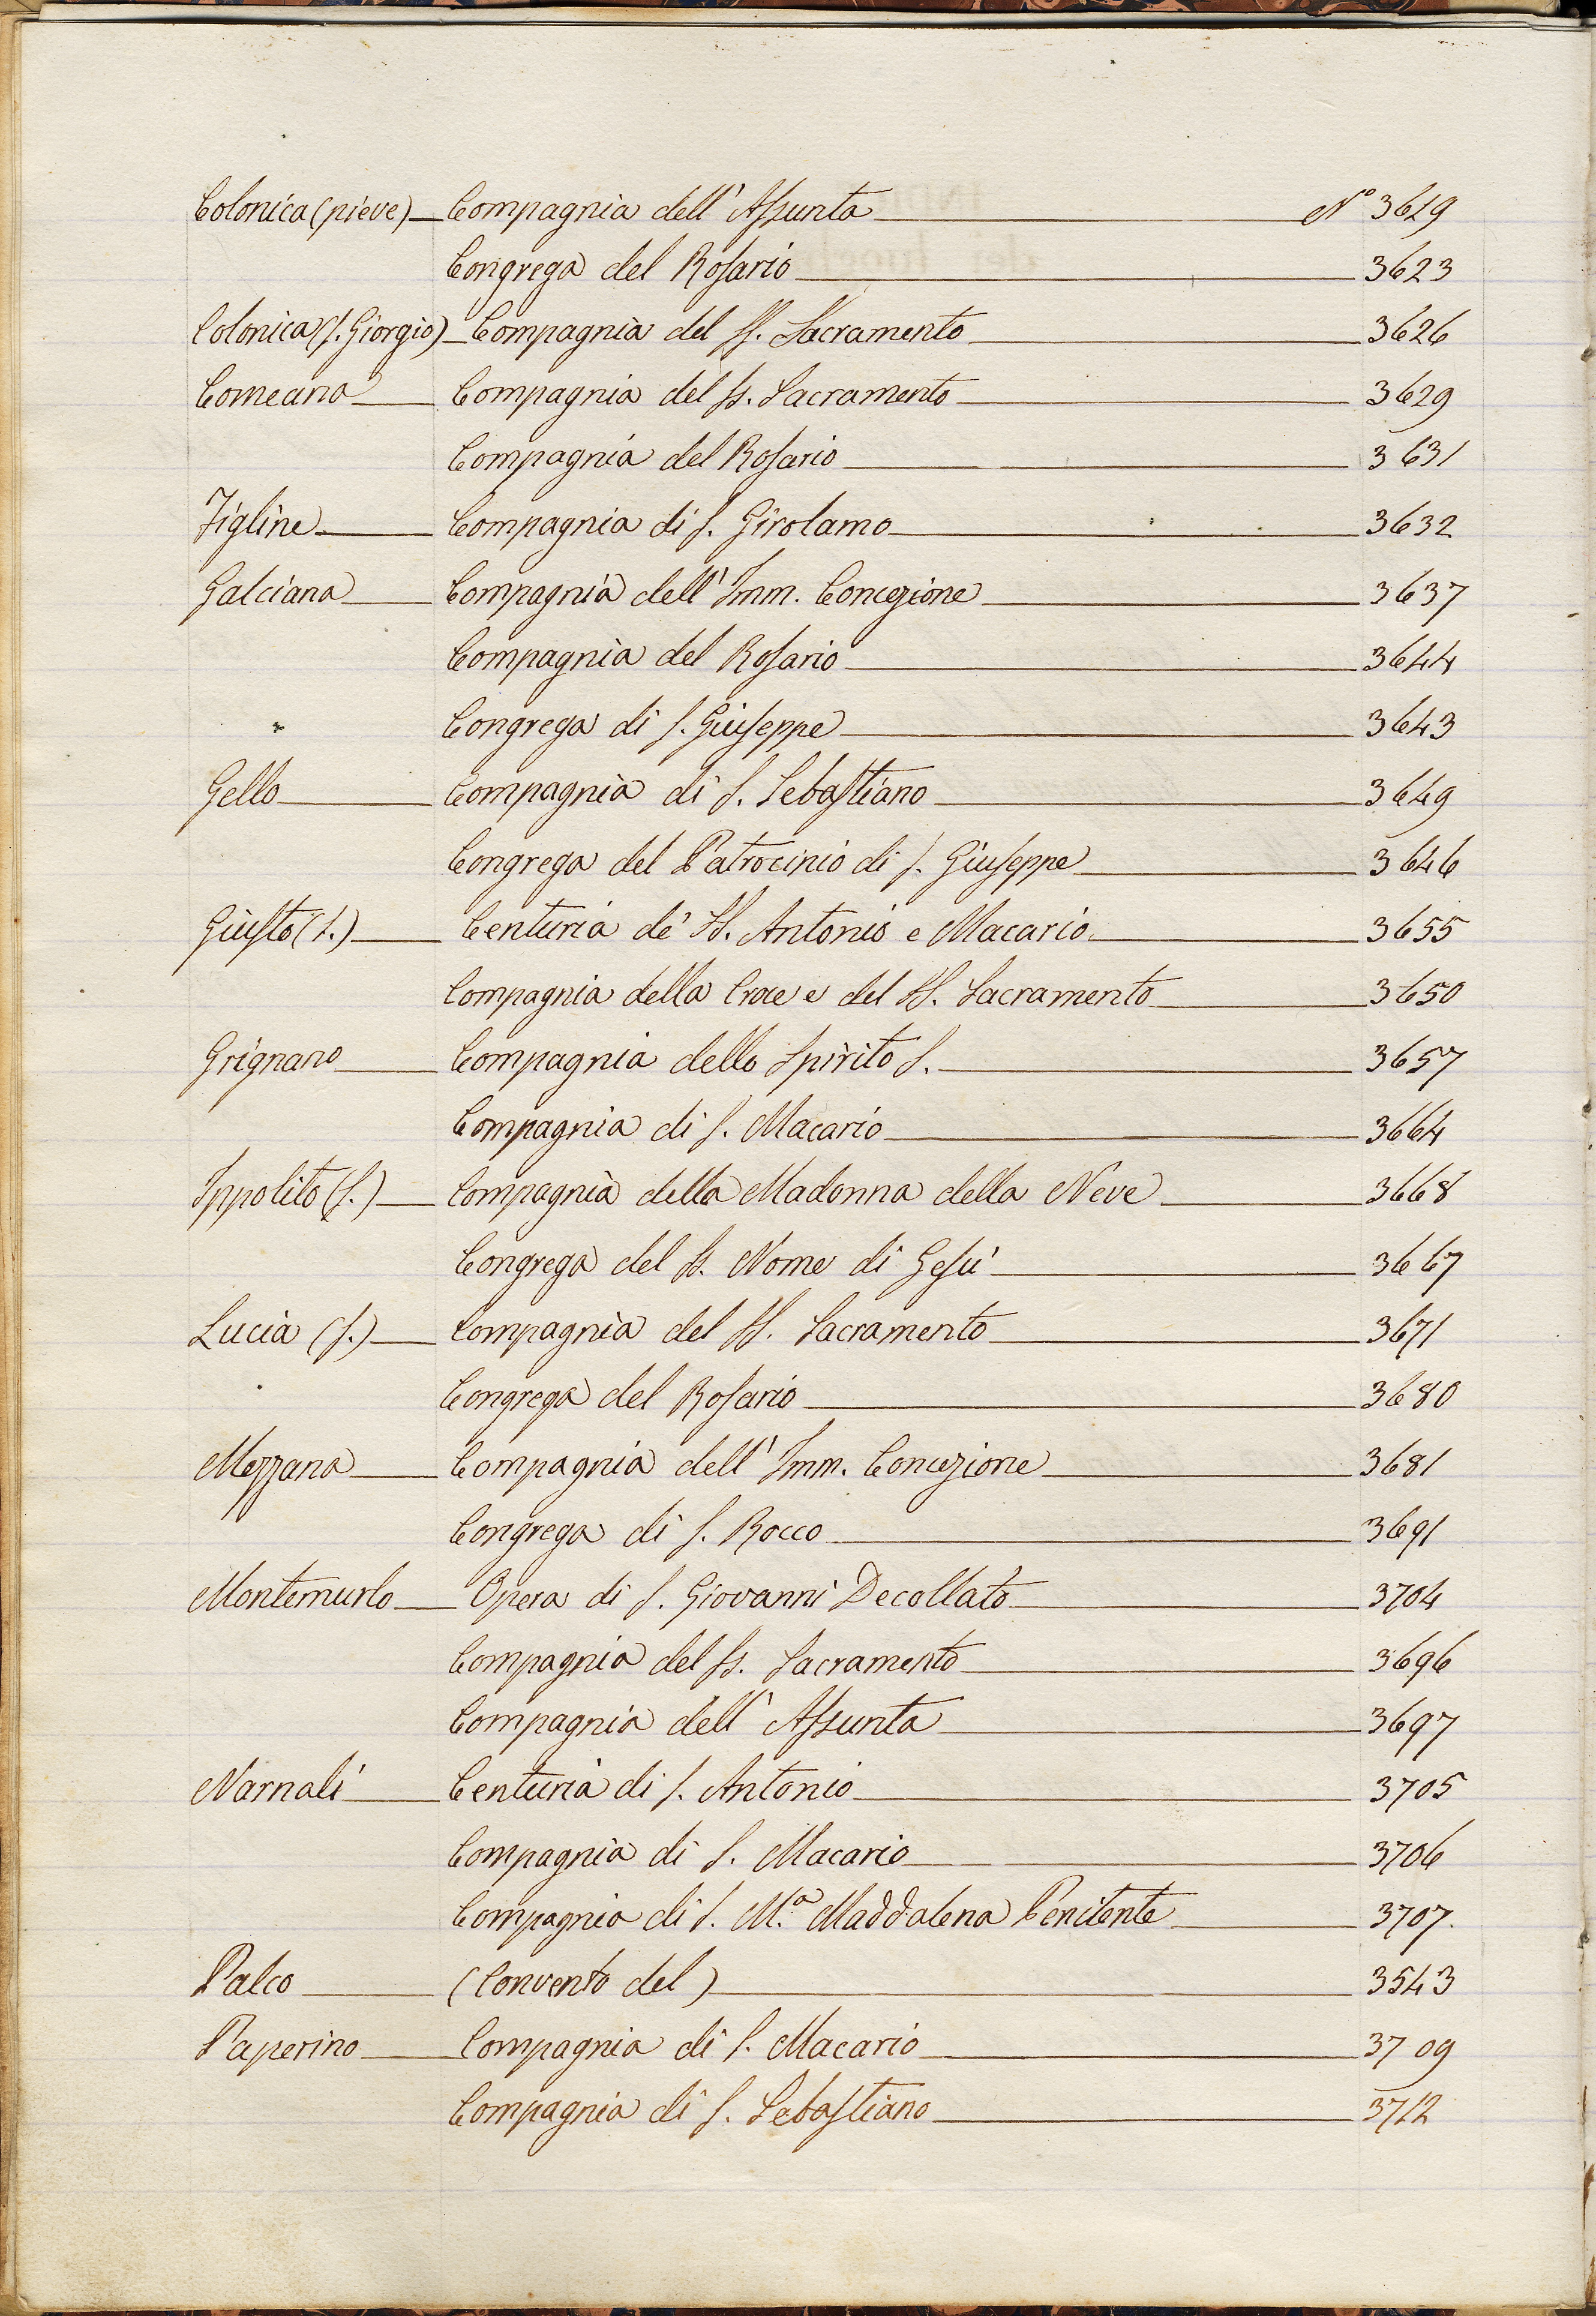 Colonica (pieve) Compagnia dell' Assunta N° 3619
Congrega del Rosario 3623
Colonica (S. Giorgio) Compagnia del SS. Sacramento 3626
Comeana Compagnia del SS. Sacramento 3629
Compagnia del Rosario 3631
Figline Compagnia di S. Girolamo 3632
Galciana Compagnia dell' Imm. Concezione 3637
Compagnia del Rosario 3644
Congrega di S. Giuseppe 3643
Gello Compagnia di S. Sebastiano 3649
Congrega del Patrocinio di S. Giuseppe 3646
Giusto (S.) Centuria de' SS. Antonio e Macario 3655
Compagnia della Croce e del SS. Sacramento 3650
Grignano Compagnia dello Spirito S. 3657
Compagnia di S. Macario 3664
Ippolito (S.) Compagnia della Madonna della Neve 3668
Congrega del SS. Nome di Gesù 3667
Lucia (S.) Compagnia del SS. Sacramento 3671
Congrega del Rosario 3680
Mezzana Compagnia dell' Imm. Concezione 3681
Congrega di S. Rocco 3691
Montemurlo Opera di S. Giovanni Decollato 3704
Compagnia del SS. Sacramento 3696
Compagnia dell' Assunta 3697
Narnali Centuria di S. Antonio 3705
Compagnia di S. Macario 3706
Compagnia di S. M.ª Maddalena Penitente 3707.
Palco (Convento del) 3543
Paperino Compagnia di S. Macario 3709
Compagnia di S. Sebastiano 3712